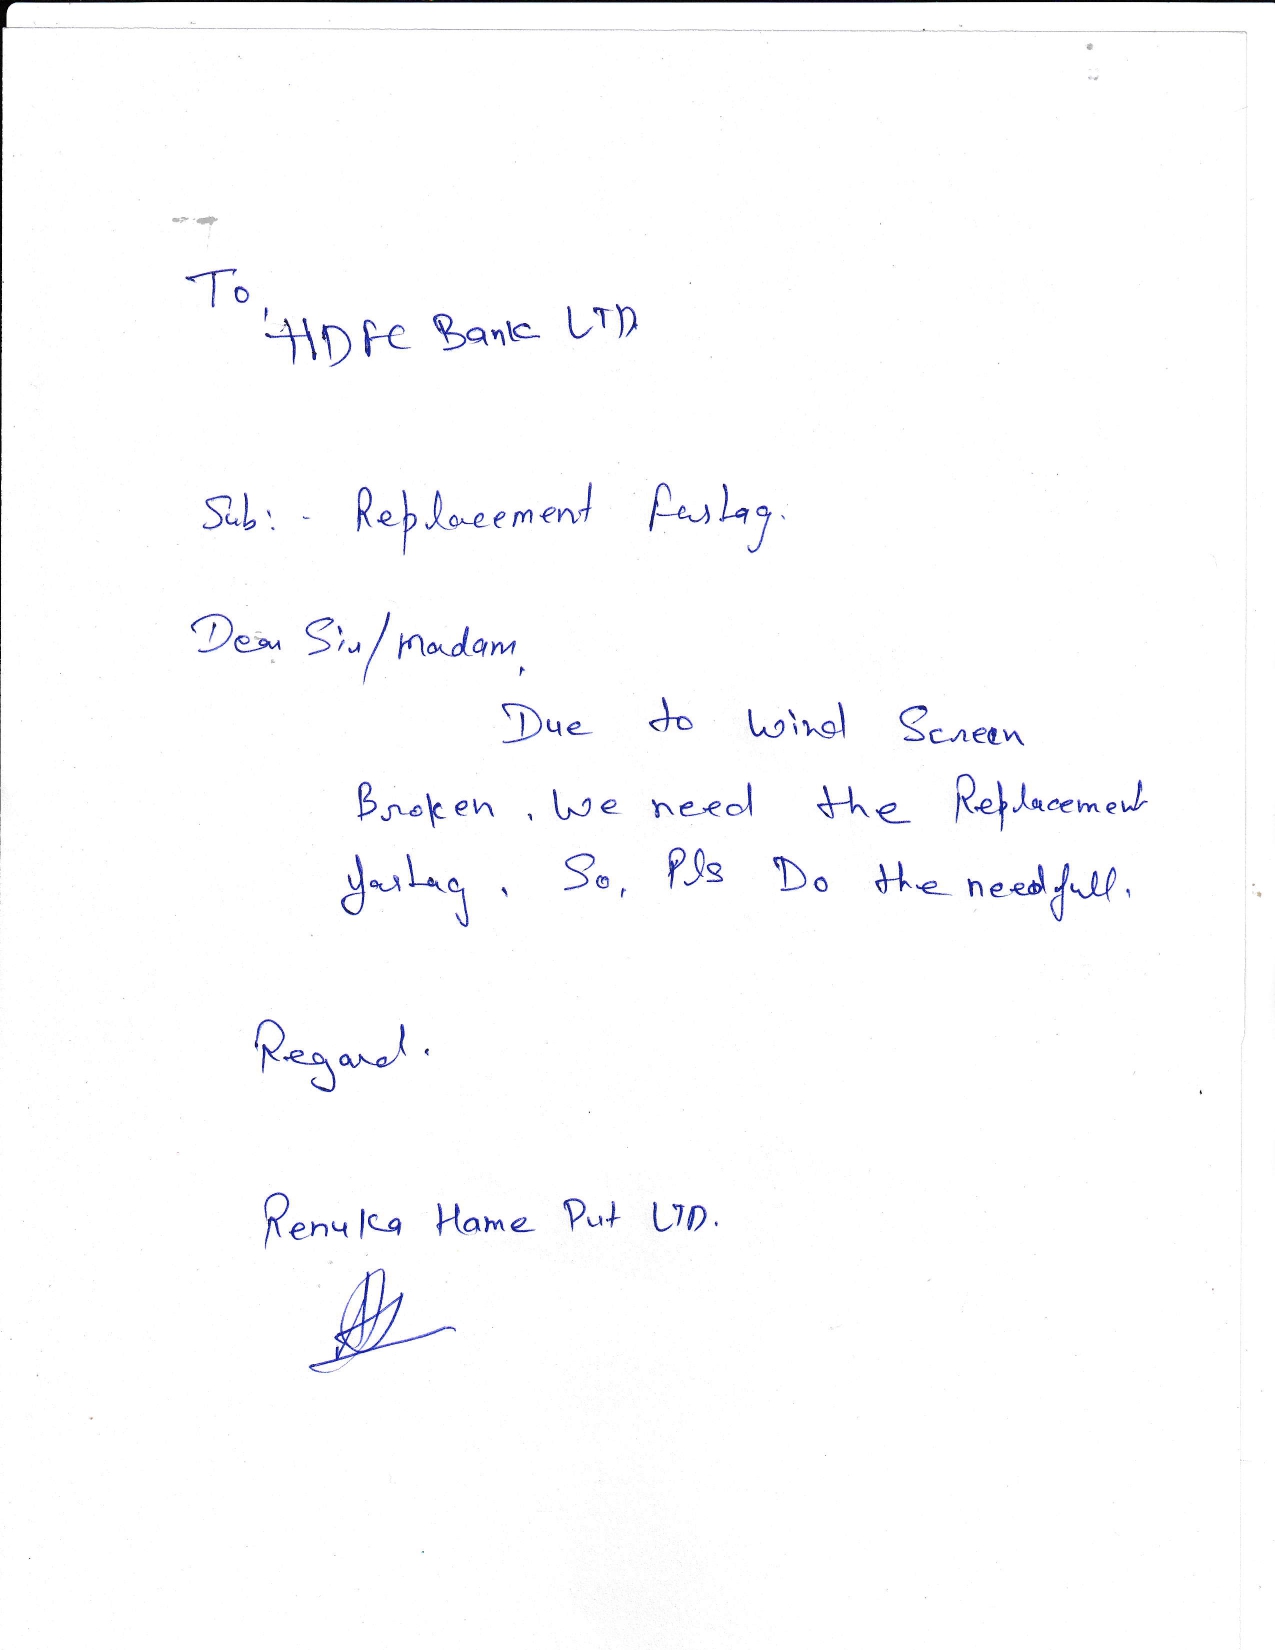 To,
HDFC Bank LTD
Sub: - Replacement fastag.
Dear Sir/Madam,
Due to Wind Screen
Broken, We need the Replacement
fastag. So, Pls Do the needfull.
Regard.
Renuka Hame Pvt LTD.